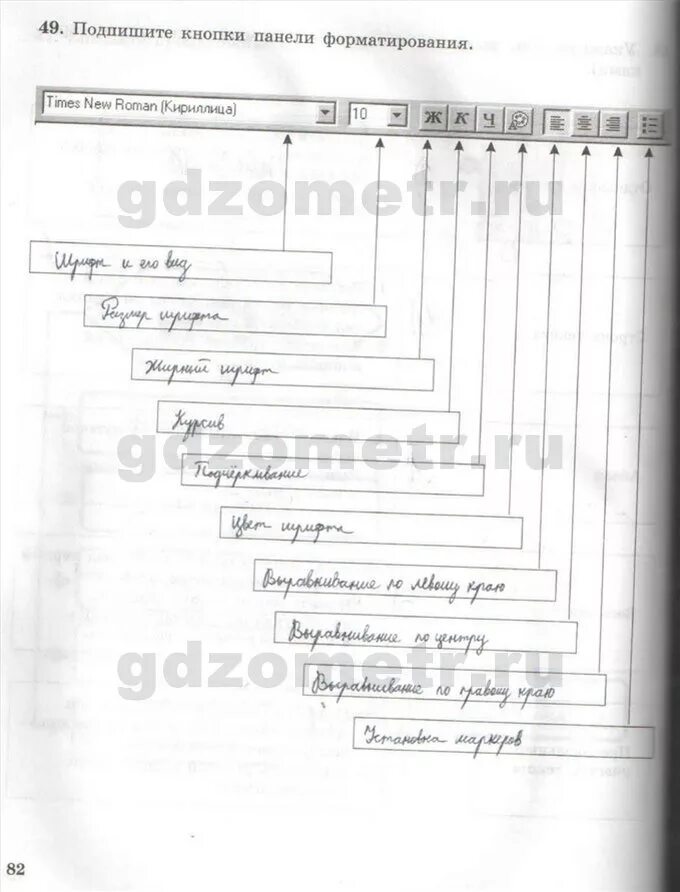 49. Подпишите кнопки панели форматирования.
Times New Roman (Кириллица) 10 Ж К Ч
gdzometr.ru
Шрифт и его вид
Размер шрифта
Жирный шрифт
Курсив
gdzometr.ru
Подчёркивание
Цвет шрифта
Выравнивание по левому краю
Выравнивание по центру
gdzometr.ru
Выравнивание по правому краю
Установка маркеров
82